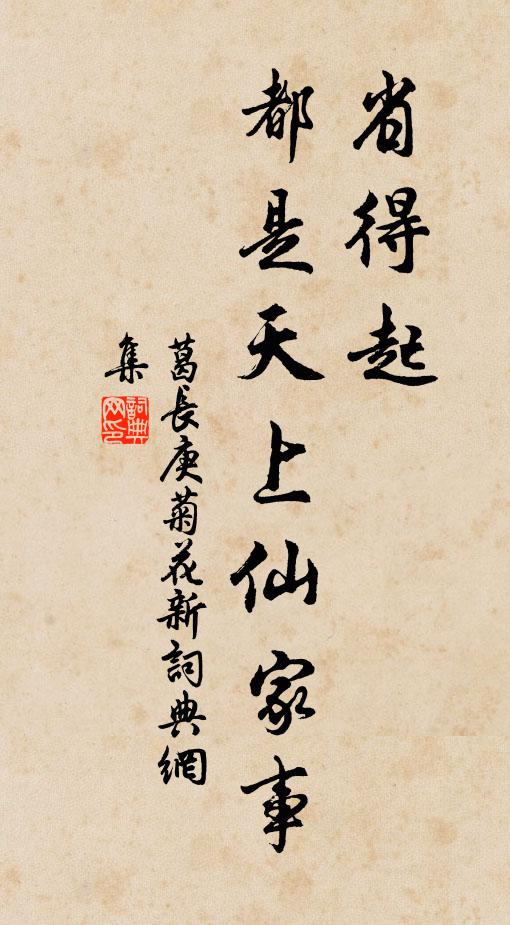 省得起
都是天上仙家事
葛長庚菊花新詞典網
集
詞典
网印